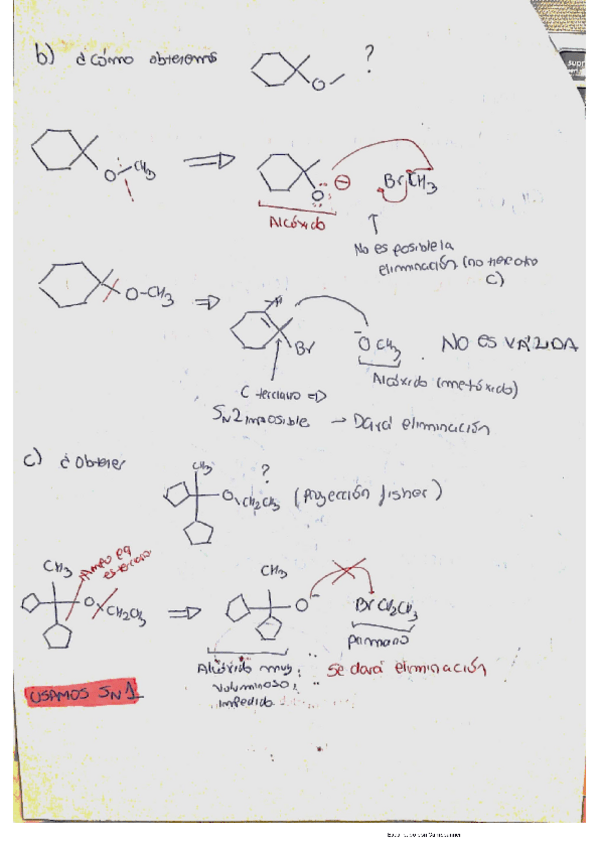 b) ¿Cómo obtenemos ?
O
O CH3
O ⊖ Br CH3
Alcóxido
No es posible la
eliminación (no tiene otro
C)
O-CH3
H
Br
-OCH3 . NO ES VÁLIDA
Alcóxido (metóxido)
C terciario ⇒
SN2 imposible → Dará eliminación
c) ¿Obtener
CH3 ?
O CH2CH3 (Proyección fisher)
CH3
O CH2CH3
CH3
O-
BrCH2CH3
primario
Alcóxido muy
voluminoso,
impedido
Se dará eliminación
USAMOS SN1